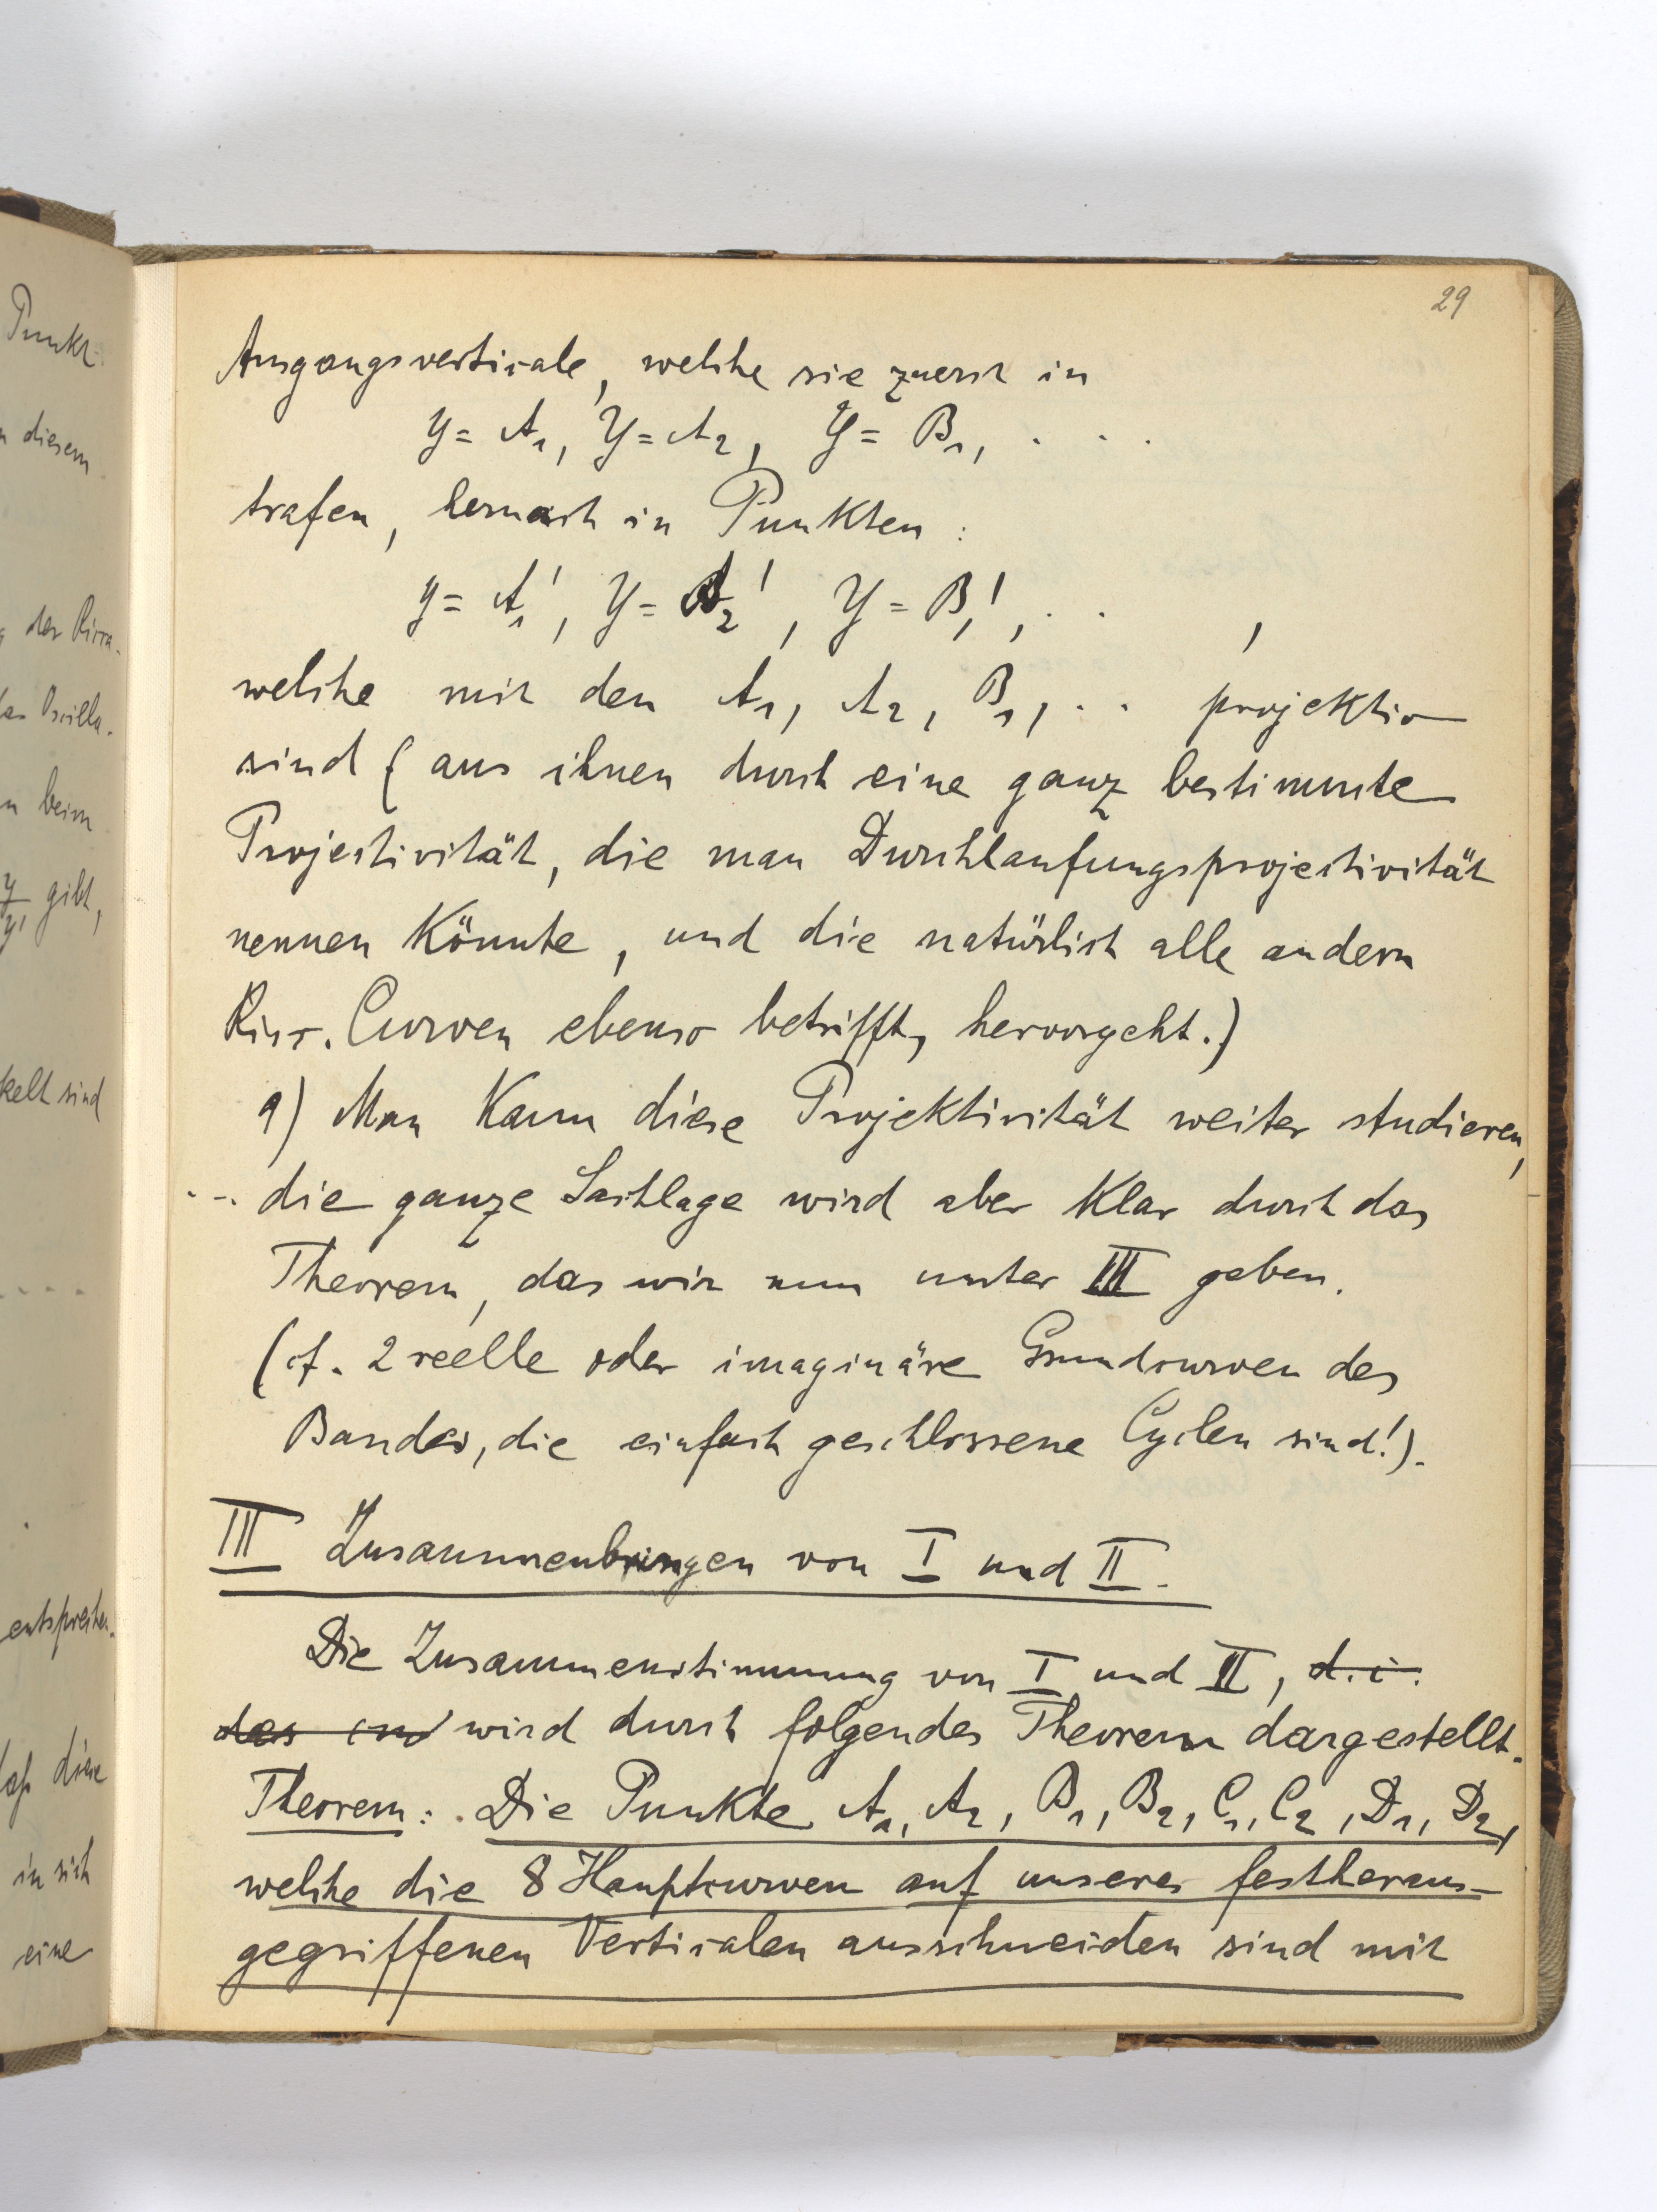 Punkt
n diesem
gibt,
n beim
kelt sind
entsprechen.
diese
in sich
eine
29
Ausgangsverticale, welche sie zuerst in
y = A₁, y = A₂, y = B₁, . . .
trafen, hernach in Punkten :
y = A₁', y = A₂', y = B₁', . . ,
welche mit den A₁, A₂, B₁, . . projektiv
sind (aus ihnen durch eine ganz bestimmte
Projectivität, die man Durchlaufungsprojectivität
nennen könnte, und die natürlich alle andern
Curven ebenso betrifft, hervorgeht.)
9) Man kann diese Projektivität weiter studieren,
... die ganze Sachlage wird aber klar durch das
Theorem, das wir nun unter III geben.
(cf. 2 reelle oder imaginäre Grundcurven des
Bandes, die einfach geschlossene Cyclen sind!).
III Zusammenbringen von I und II.
Die Zusammenstimmung von I und II, d.i.
das wird durch folgendes Theorem dargestellt.
Theorem: Die Punkte A₁, A₂, B₁, B₂, C₁, C₂, D₁, D₂,
welche die 8 Hauptcurven auf unserer festheraus-
gegriffenen Verticalen ausschneiden sind mit